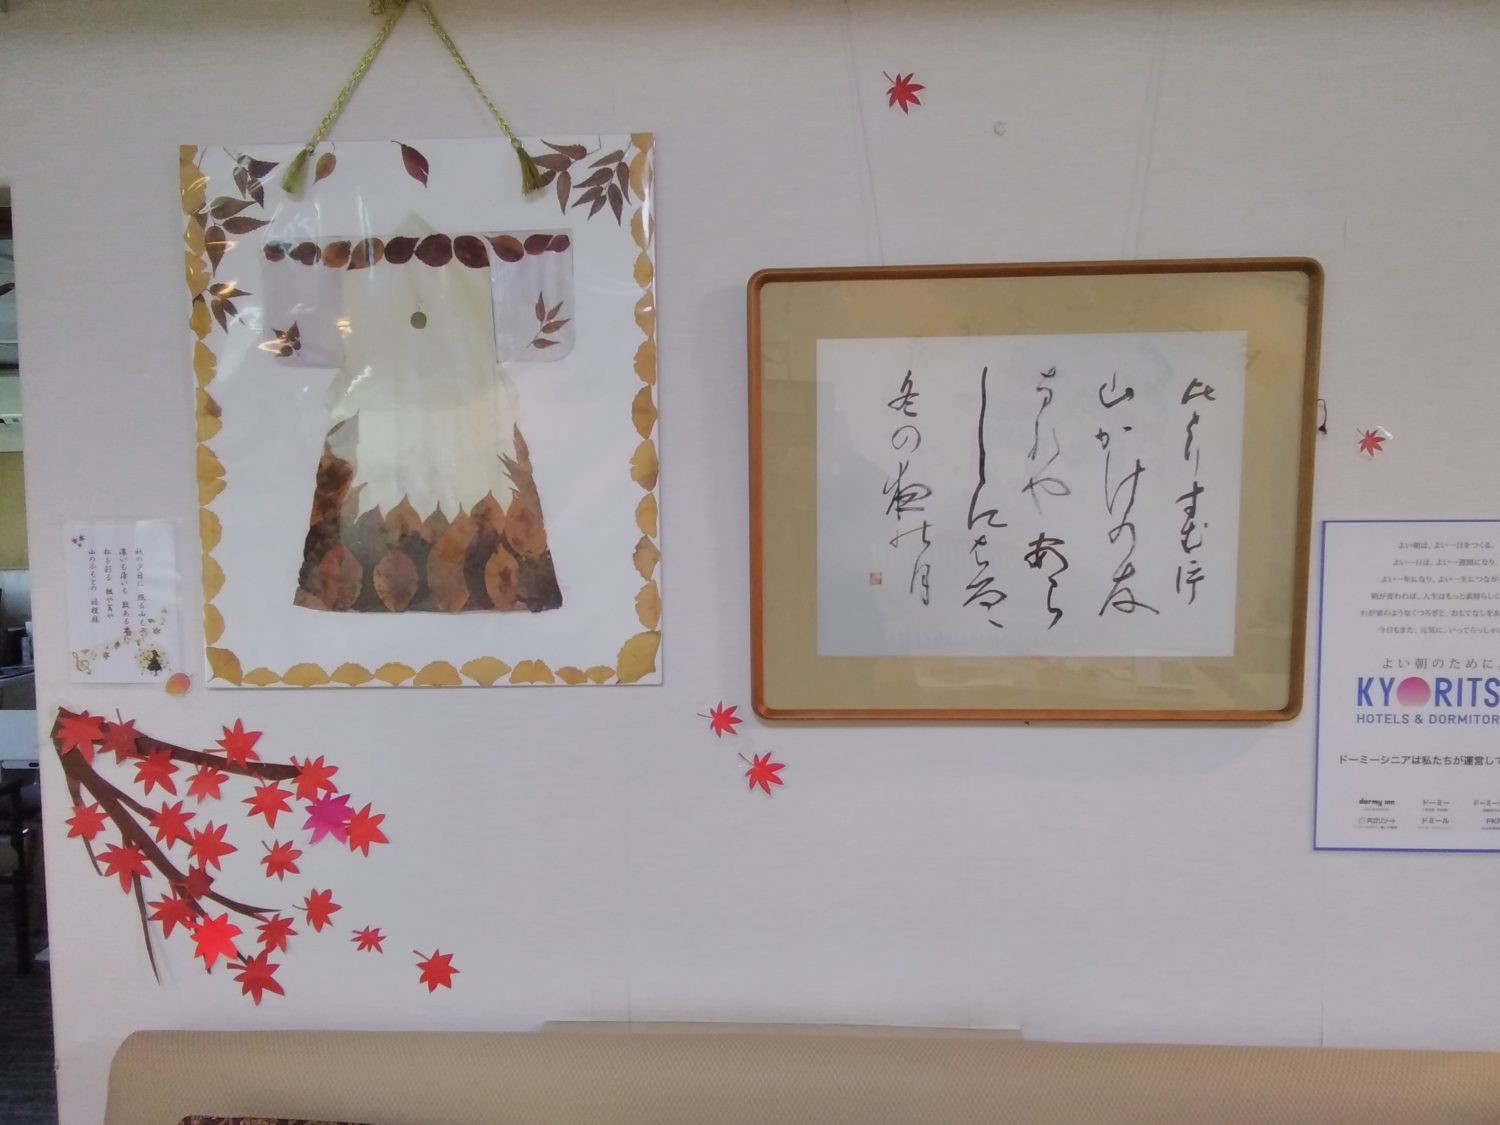 秋の夕日に 照る山もみじ
濃いも薄いも 数ある中に
松を彩る 楓や蔦や
山のふもとの 裾模様
比とりすむ片
山かけの友
なれや あら
しにはるゝ
冬の夜能月
よい朝は、よい一日をつくる。
よい一日は、よい一週間になり、
よい一年になり、よい一生につなが
朝が変われば、人生はもっと素晴らしく
わが家のようなくつろぎと、おもてなしをあ
今日もまた、元気に、いってらっしゃ
よい朝のために
KYORITS
HOTELS & DORMITOR
ドーミーシニアは私たちが運営して
dormy inn ドーミー ドーミー
共立リゾート ドミール PKP